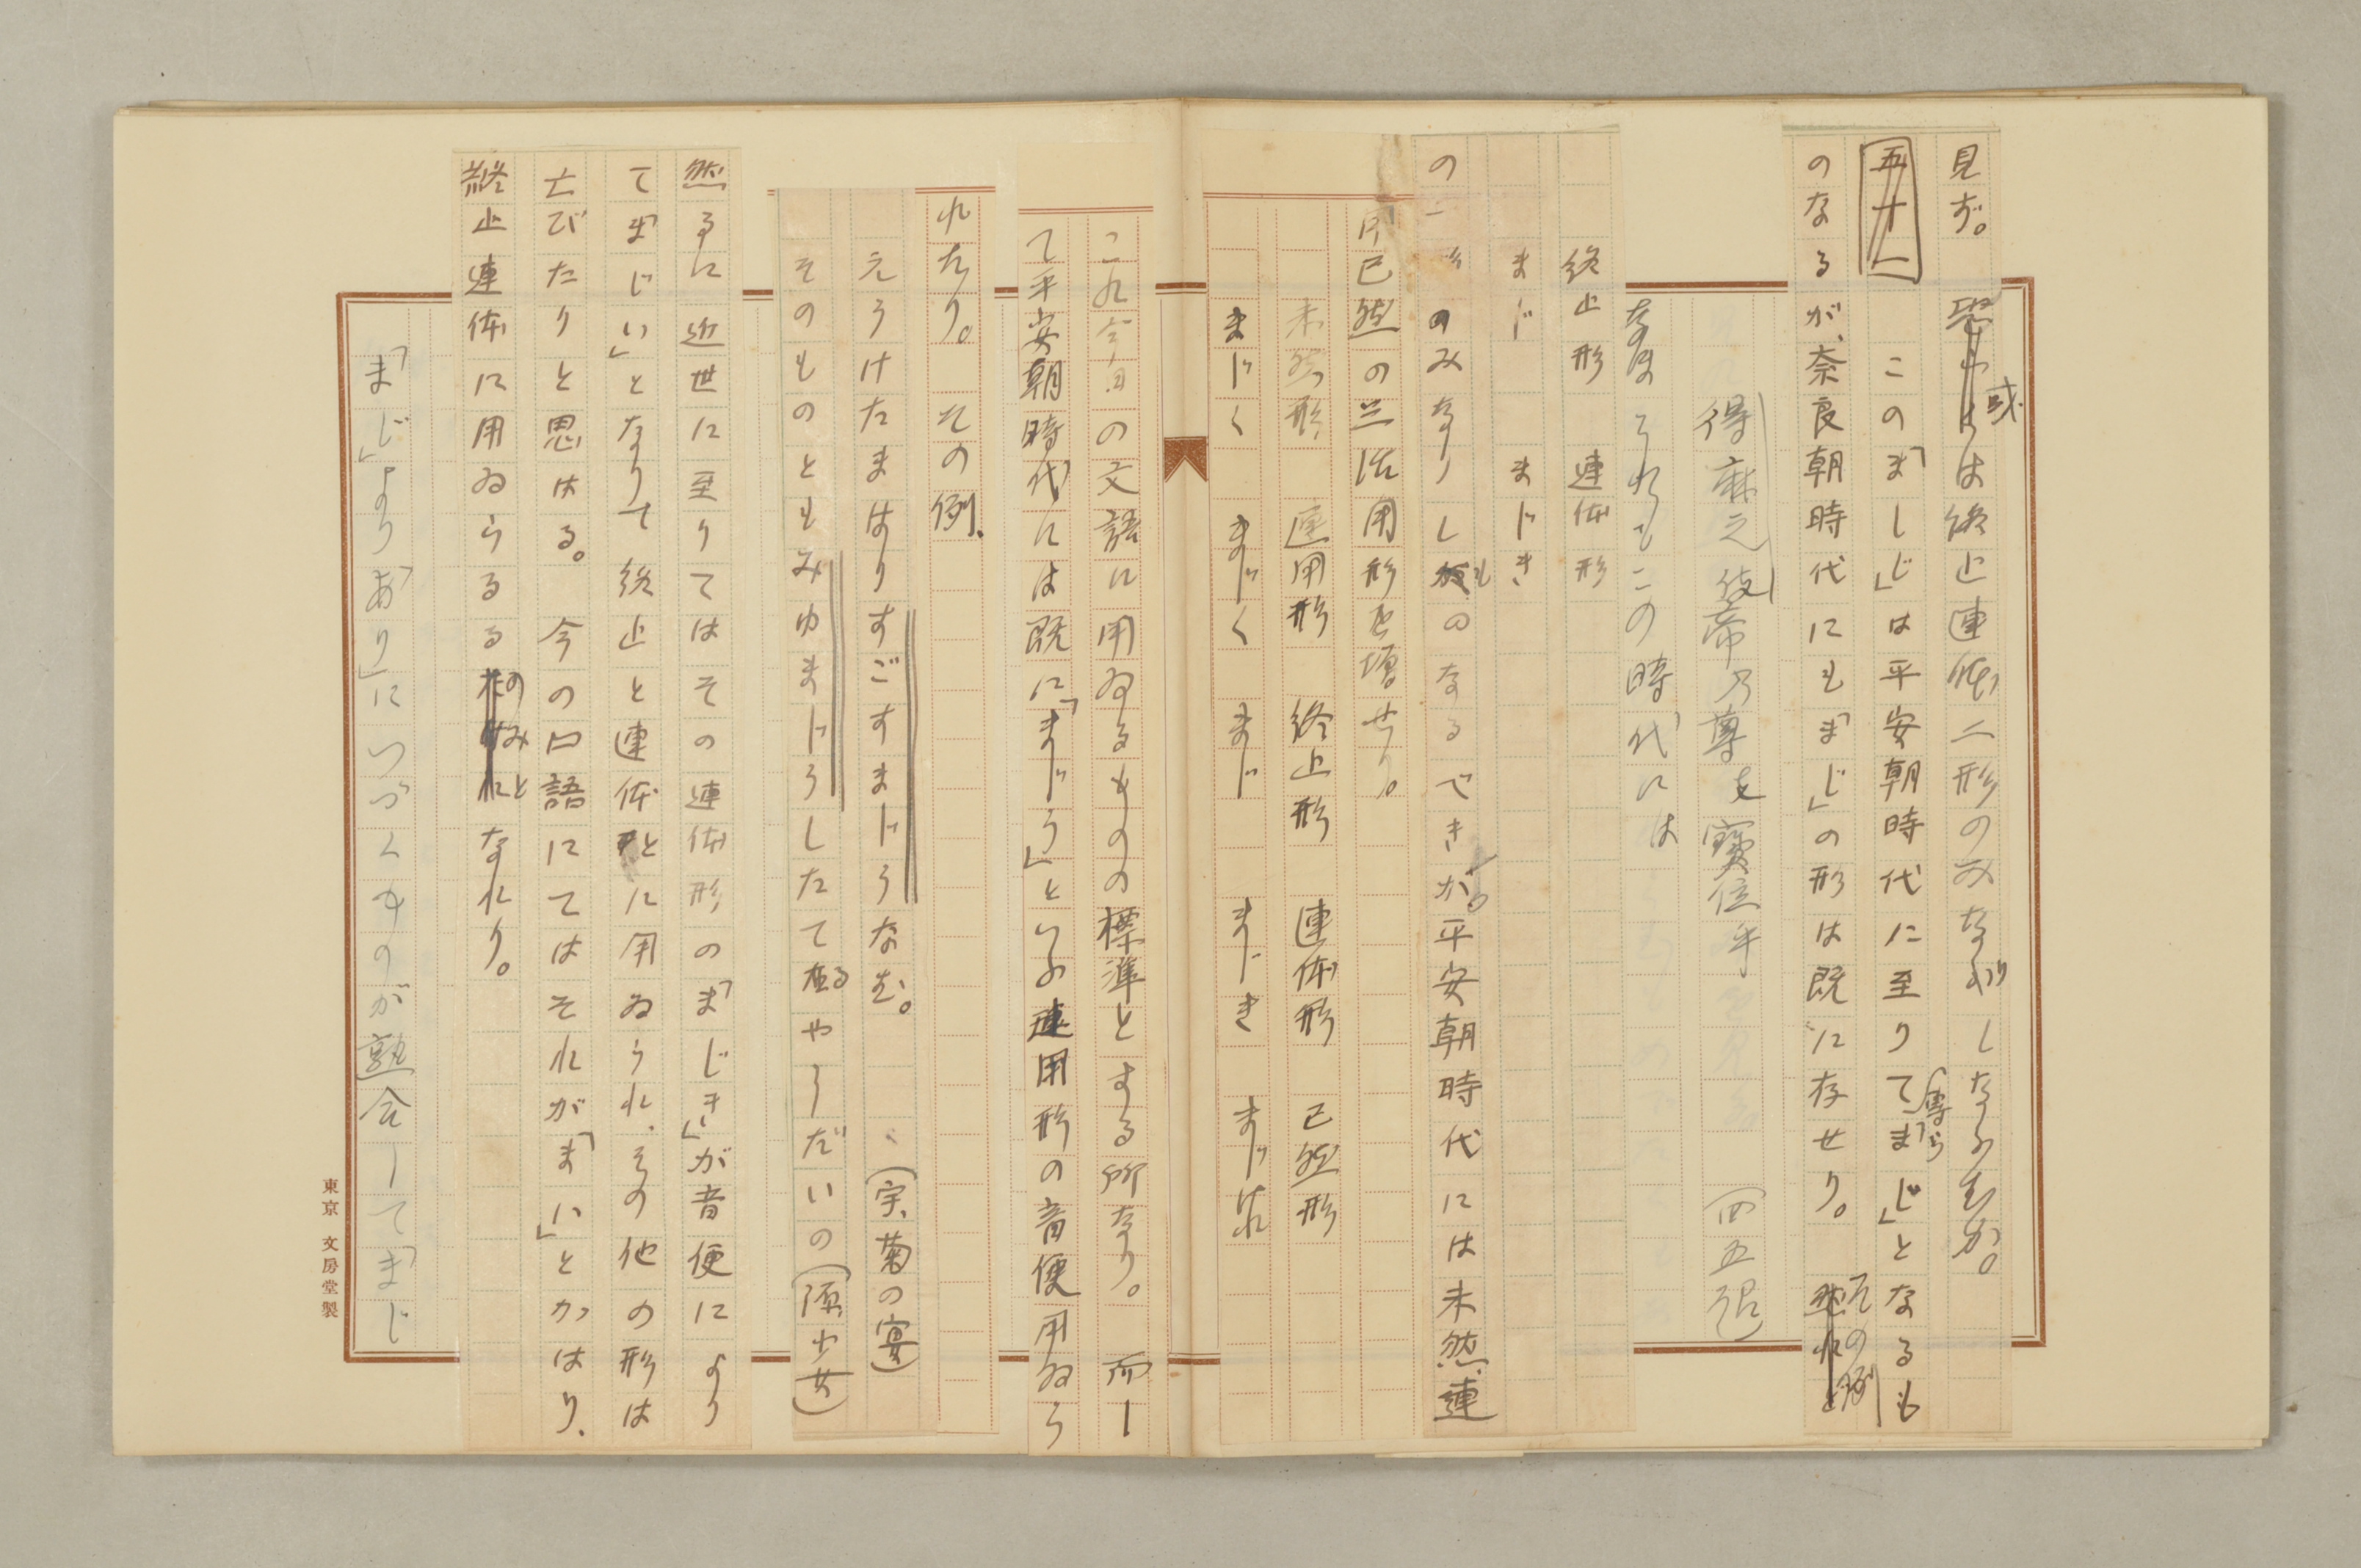 見ず。或は終止連体二形のみなりしならむか。
このまじ」は平安朝時代に至りて専ら「まじ」となるも
のなるが、奈良朝時代にも「まじ」の形は既に存せり。その例
得麻之伎帝乃尊支寶位乎（四五詔）
なほこれもこの時代には
終止形　連体形
まじ　まじき
のみなりしものなるべきか。平安朝時代には未然、連
用、已然の三活用形を増せり。
未然形　連用形　終止形　連体形　已然形
まじく　まじく　まじ　まじき　まじけれ
これ今日の文語に用ゐるものの標準とする所なり。而し
て平安朝時代には既に「まじう」といふ連用形の音便用ゐら
れたり。その例、
えうけたまはりすごすまじうなむ。（宇、菊の宴）
そのものともみゆまじうしたてる　やしだいの（源、少女）
然るに近世に至りてはその連体形の「まじき」が音便により
て「まじい」となりて終止と連体とに用ゐられ、その他の形は
亡びたりと思はる。今の口語にてはそれが「まい」とかはり、
終止連体に用ゐらるるのみとなれり。
「まじ」より「あり」につづくものが熟合して「まじ
東京　文房堂製